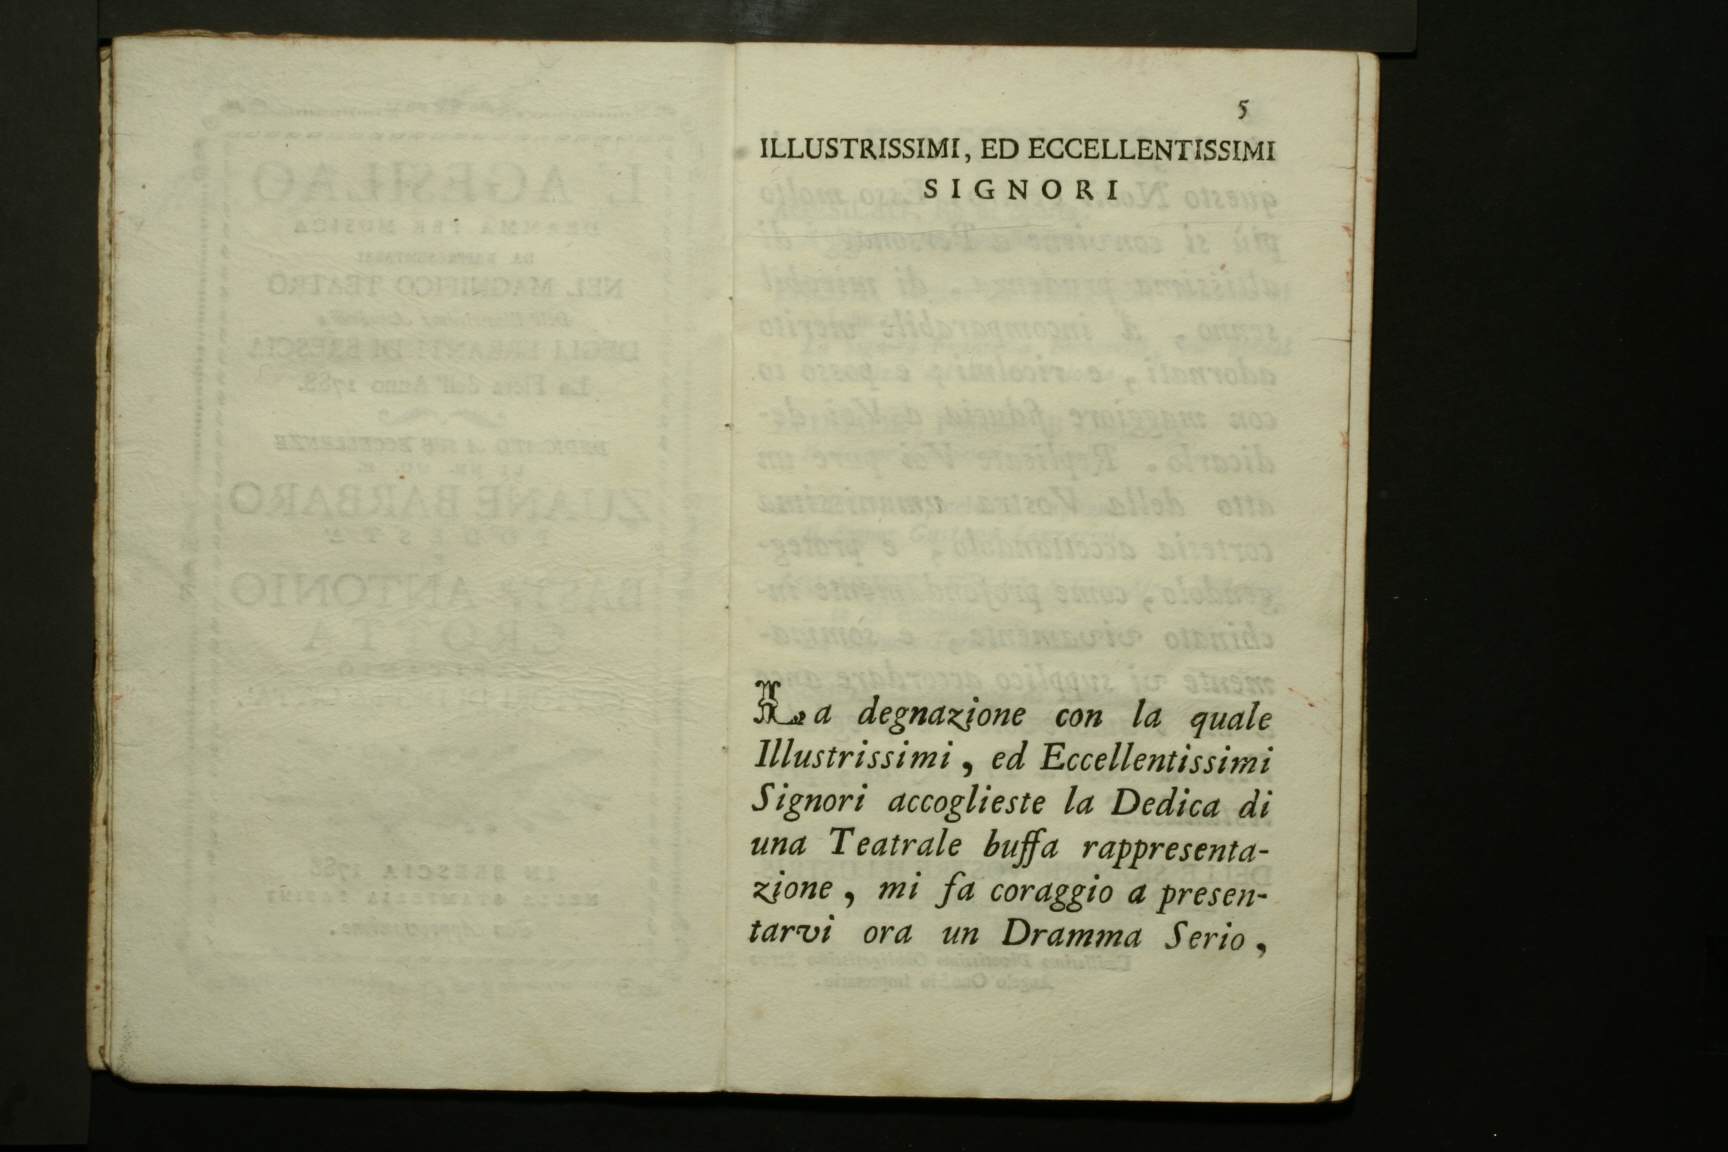 5
ILLUSTRISSIMI, ED ECCELLENTISSIMI
SIGNORI
La degnazione con la quale
Illustrissimi, ed Eccellentissimi
Signori accoglieste la Dedica di
una Teatrale buffa rappresenta-
zione, mi fa coraggio a presen-
tarvi ora un Dramma Serio,